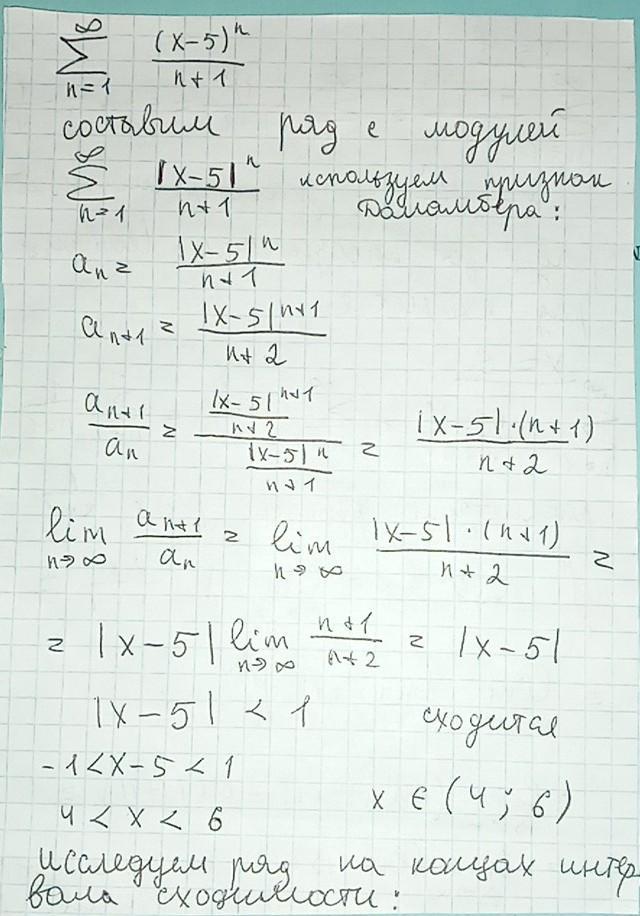 ∞∑n=1 (x-5)^n / (n+1)
составим ряд с модулей
∞∑n=1 |x-5|^n / (n+1) используем признак
Даламбера:
a_n = |x-5|^n / (n+1)
a_(n+1) = |x-5|^(n+1) / (n+2)
a_(n+1) / a_n = (|x-5|^(n+1) / (n+2)) / (|x-5|^n / (n+1)) = |x-5|·(n+1) / (n+2)
lim n→∞ a_(n+1) / a_n = lim n→∞ |x-5|·(n+1) / (n+2) =
= |x-5| lim n→∞ (n+1) / (n+2) = |x-5|
|x-5| < 1 сходится
-1 < x-5 < 1
4 < x < 6 x ∈ (4; 6)
исследуем ряд на концах интер
вала сходимости: